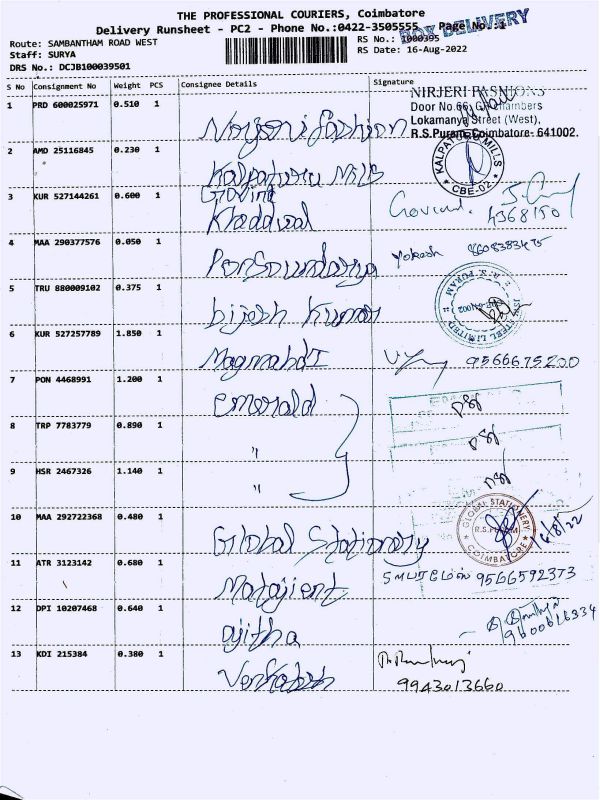 THE PROFESSIONAL COURIERS, Coimbatore
Delivery Runsheet - PC2 - Phone No.:0422-3505555 - Page No.:1
BOX DELIVERY
Route: SAMBANTHAM ROAD WEST
RS No.: 1000395
Staff: SURYA
RS Date: 16-Aug-2022
DRS No.: DCJB100039501
S No Consignment No Weight PCS Consignee Details Signature
NIRJERI FASHIONS
1 PRD 600025971 0.510 1
Door No.66, Chambers
Lokamanya Street (West),
Nirjeri fashion
R.S.Puram, Coimbatore- 641002.
2 AMD 25116845 0.230 1
KALPATURU MILLS
Kalpaturu Mills
CBE-02
3 KUR 527144261 0.600 1 Govind
Govind. 4368150
Khadawal
4 MAA 290377576 0.050 1
Yokesh 8608383475
PonSoundarya
5 TRU 880009102 0.375 1
R. S. PURAM
STEEL LIMITED
Bijesh Kumar
6 KUR 527257789 1.850 1
Magmahdi
9566675200
7 PON 4468991 1.200 1 Emerald
8 TRP 7783779 0.890 1 "
9 HSR 2467326 1.140 1 "
10 MAA 292722368 0.480 1
GLOBAL STATIONERY
R.S.PURAM
COIMBATORE
16/8/22
Global Stationary
11 ATR 3123142 0.680 1
9566592373
12 DPI 10207468 0.640 1
Ajitha
9600616334
13 KDI 215384 0.380 1
Venkatesh
9943013660